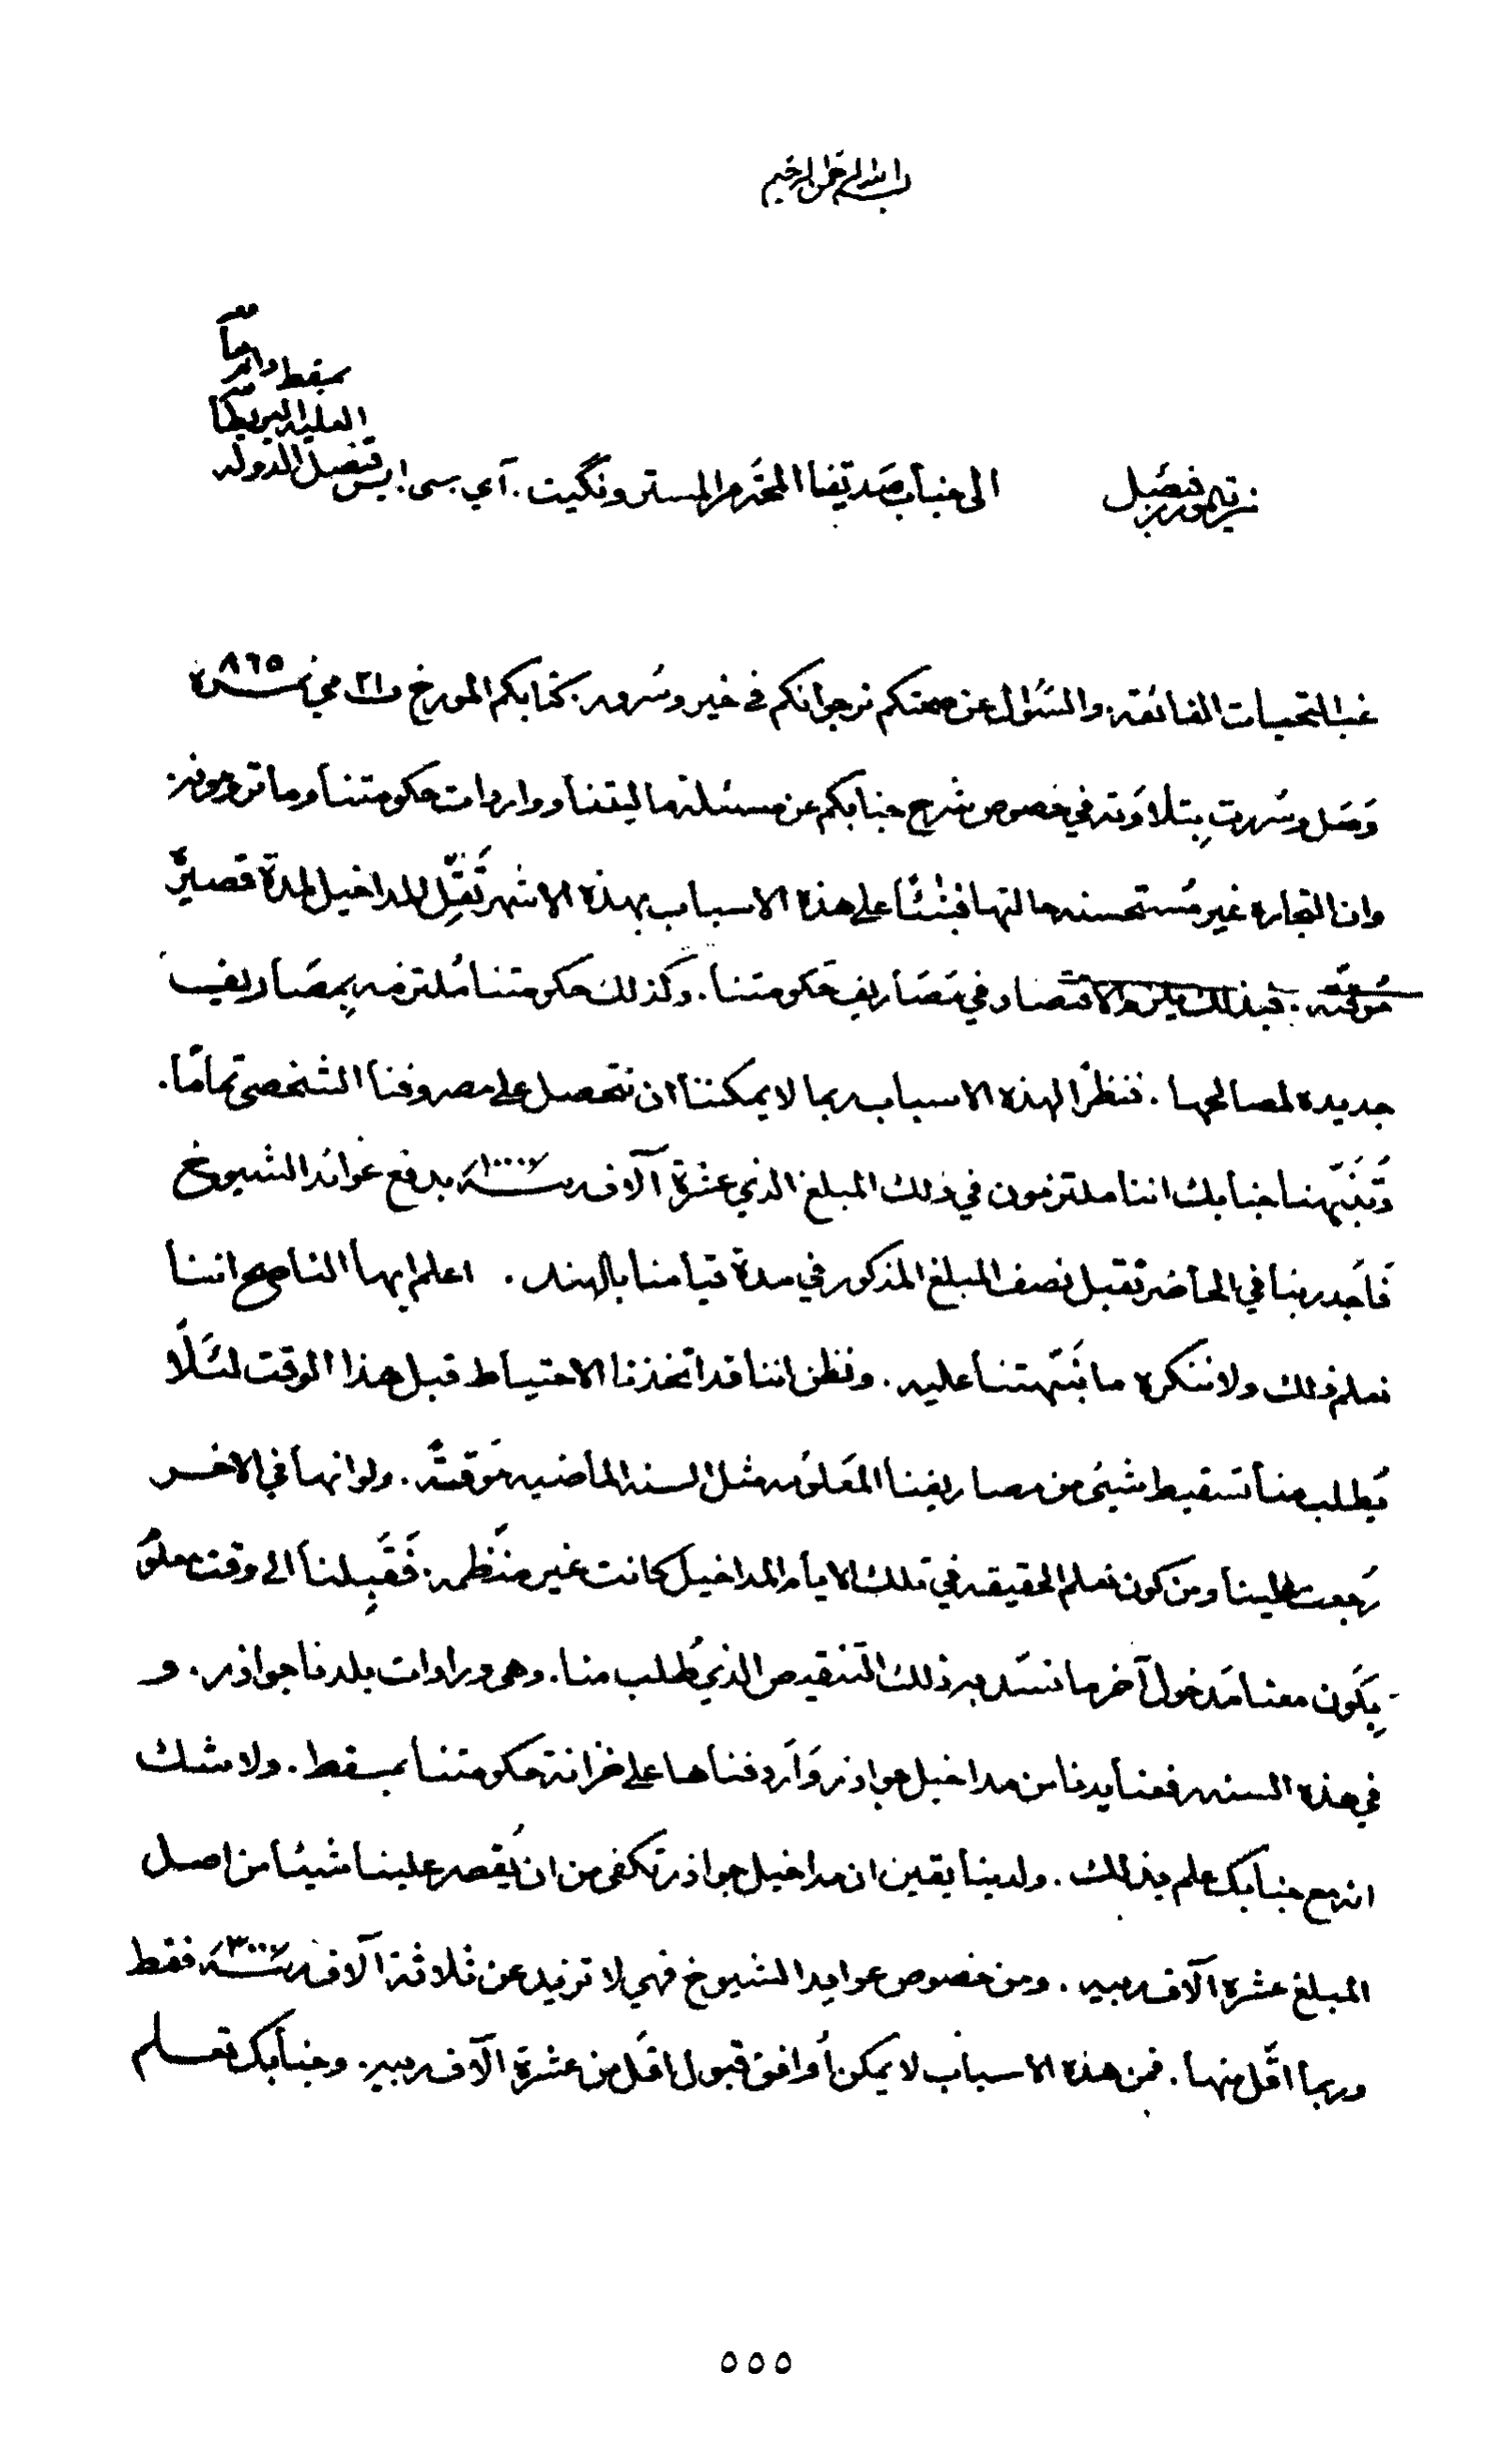 بسم الله الرحمن الرحيم
من تيمور بن فيصل الى جناب صديقنا المحترم المستر ونگيت. آي. سي. ايس قنصل الدولة
العلية البريطانية
بمسقط دام
غب التحيات الفائقة. والسؤال عن صحتكم نرجوا انكم في خير وسرور. كتابكم المورخ ٢١ مي نمرة ٨٦٥
وَصَل وسُررت بِتلاوَته في خصوص شرح جنابكم عن مسئلة ماليتنا وواردات حكومتنا وما ترجونه
وان التجارة غير مُستحسنه حالتها فبِنْئاً على هذه الاسباب بهذه الاشهر تَقِلّ المداخيل لمدة قصيرةً
مُوقتّه. فبذلك يلزم الاقتصاد في مَصَاريف حَكومتنا. وكذلك حكومتنا مُلتزمه بِمصَاريف
جديده لمصالحها. فنظراً لهذه الاسباب ربما لا يمكننا ان نتحصل على مصروفنا الشخصي تمامًا.
وتُنَبّهنا جنابك اننا ملتزمون في ذلك المبلغ الذي عشرة آلاف ربيه ١٠٠٠٠ بدفع عوائد الشيوخ
فَاَجدر بنا في الحاضر نقبل نصف المبلغ المذكور في مدة قيامنا بالهند. اعلم ايها الناصح اننا
نعلم ذلك ولا ننكره ما نَبّهتنا عليه. ونظن اننا قد اتخذنا الاحتياط قبل هذا الوقت لئَلّا
يُطلب منا تسقيط شيئ من مصاريفنا المَعلومه مثل السنه الماضيه مَوقتهً. ولو انها في الاخر
رَجعت الينا ومن كون نعلم الحقيقه في تلك الايام المداخيل كانت غير منّظمه. فَقَبِلنا الى وقت معلوم
يِكَون معنا مَدخول آخر ما نسَد به ذلك التنقيص الذي يُطلب منا. وهي وراوات بلدنا جواذر. و
في هذه السنه رفعنا يدنا من مداخيل جواذر وَاَردفناها على خزانة حكومتنا بمسقط. ولا شك
انه مع جنابك علم بذلك. ولدينا يقين ان مداخيل جواذر تكفي من ان يُقصر علينا شيئا من اصل
المبلغ عشره آلاف ربيه. ومن خصوص عوايد الشيوخ فهي لا تزيد عن ثلاثة آلاف ربيه ٣٠٠٠ فقط
وربما اقّل منها. فمن هذه الاسباب لا يمكن اُوافق قبول اقَل من عشرة آلاف ربيه. وجنابك تعلم
٥٥٥